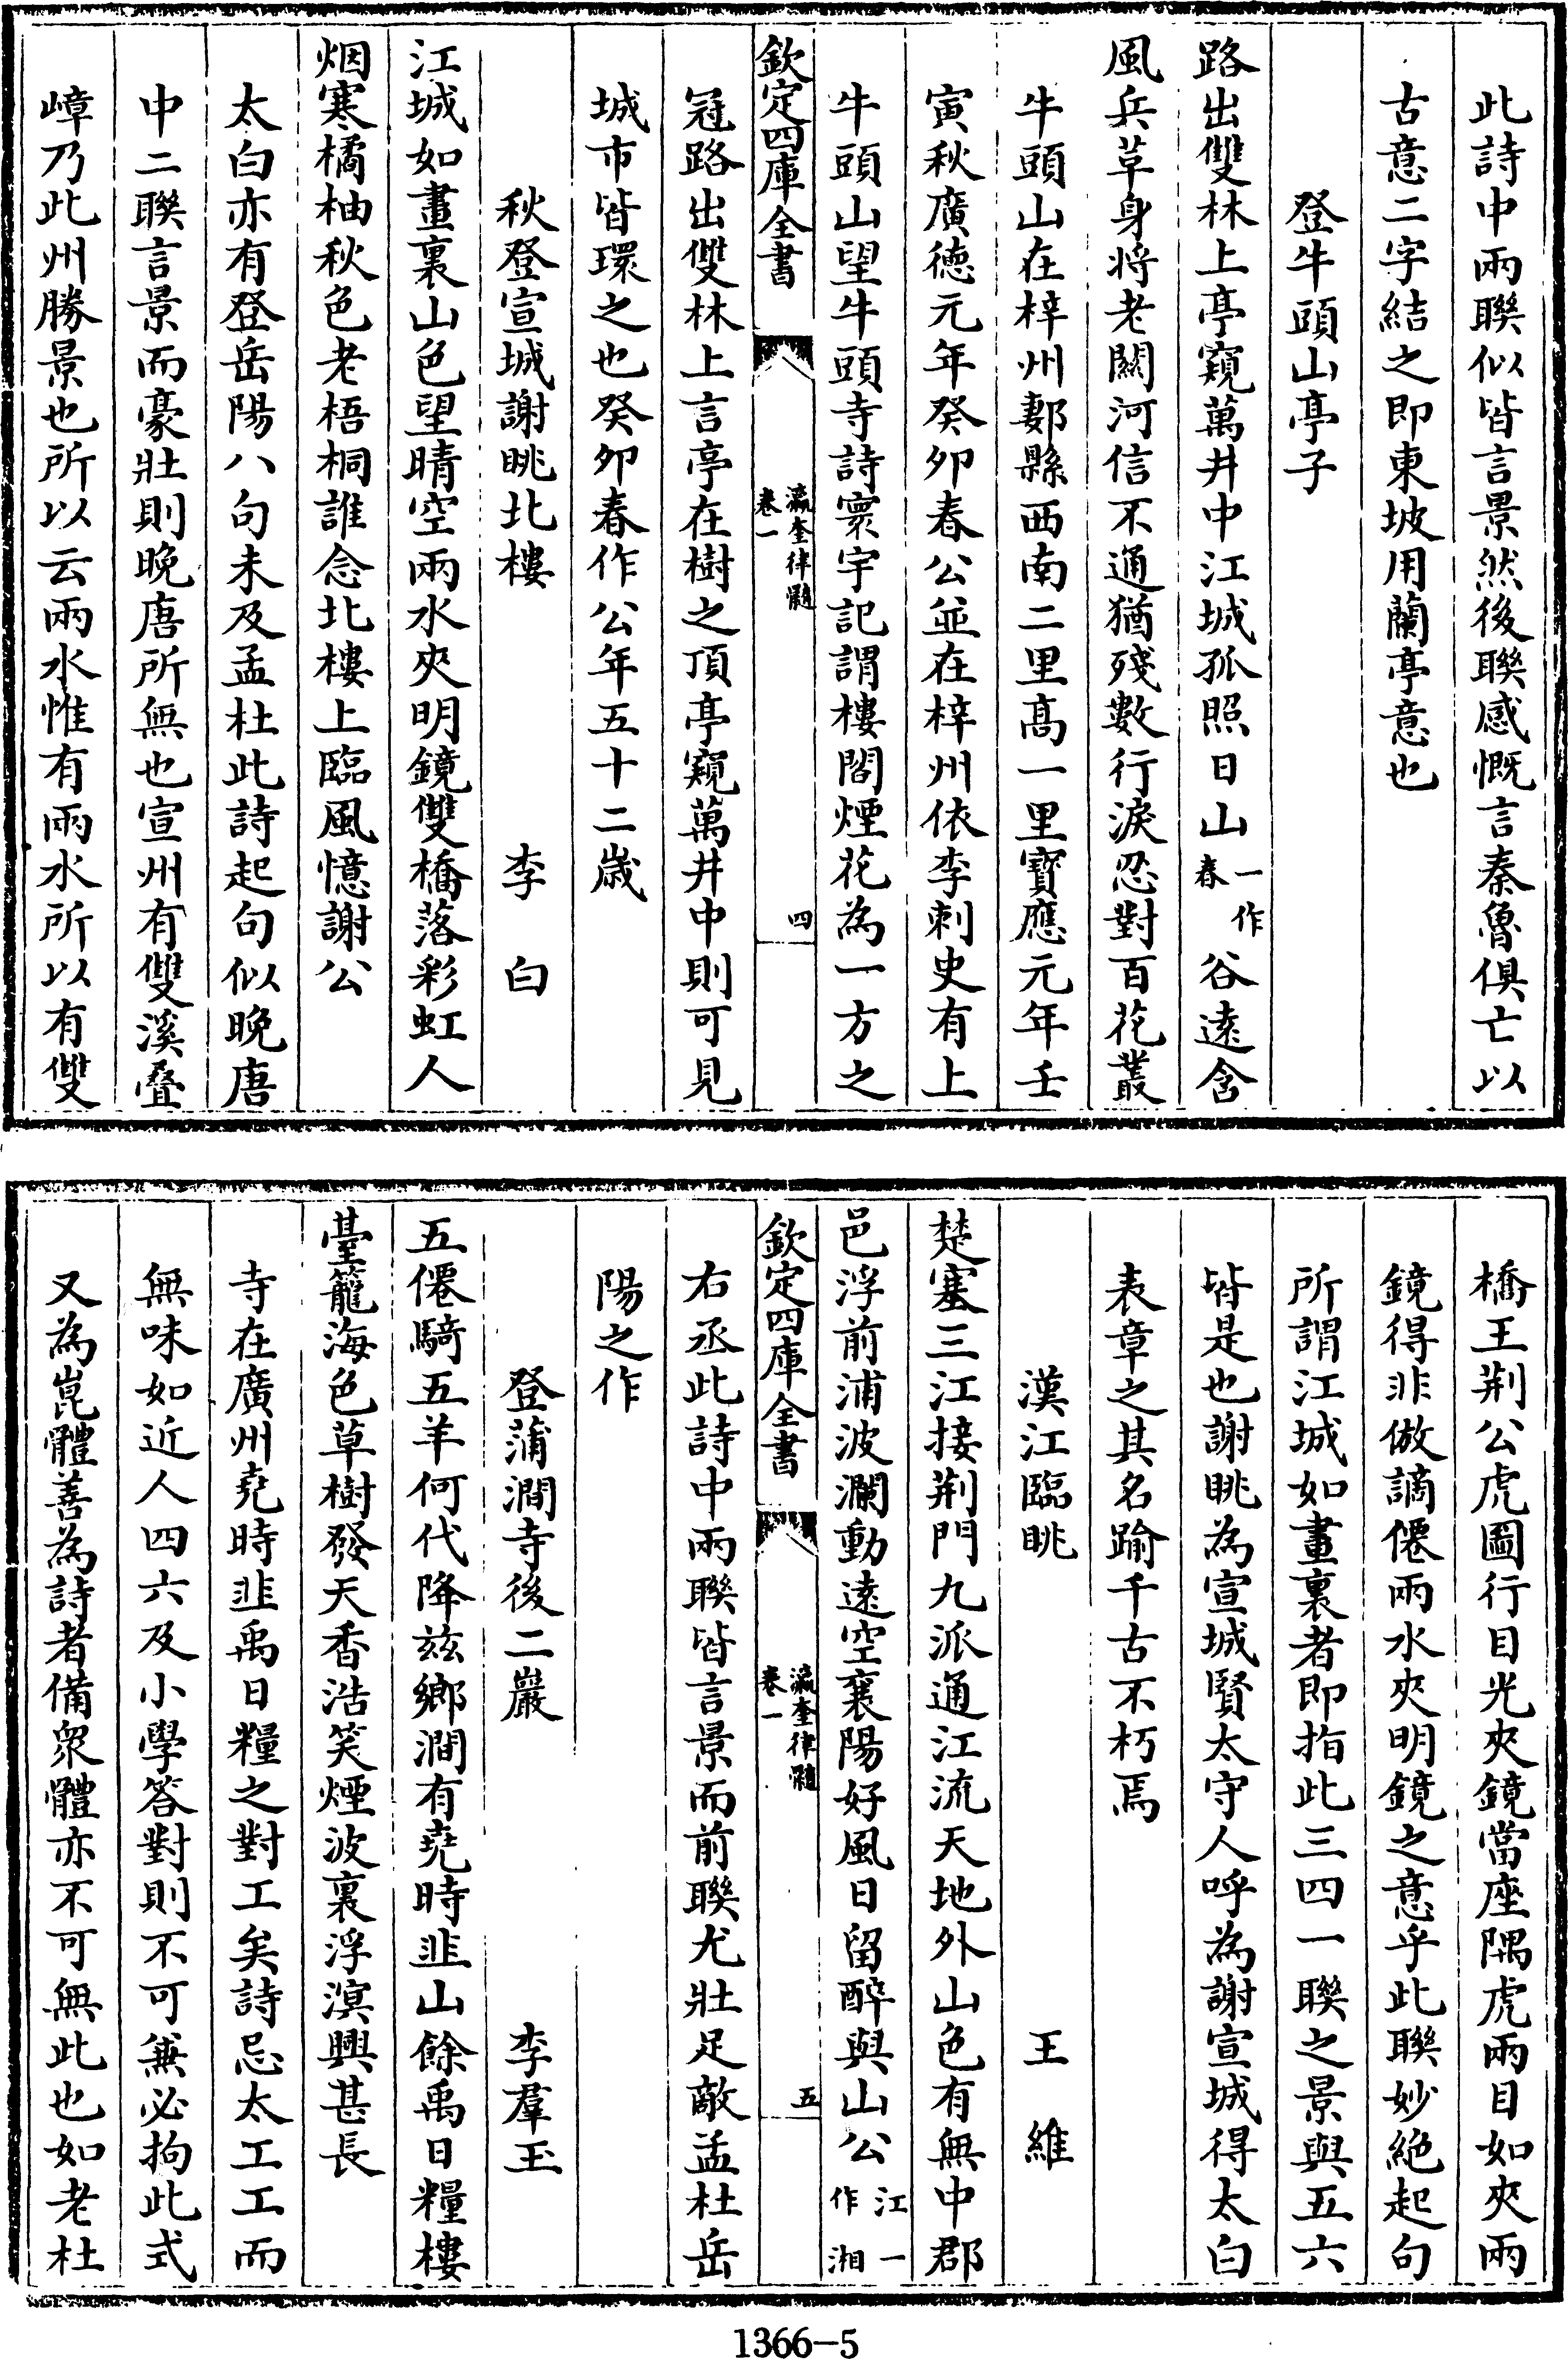 此詩中兩聯似皆言景然後聯感慨言秦魯俱亡以
古意二字結之即東坡用蘭亭意也
登牛頭山亭子
路出雙林上亭窺萬井中江城孤照日山一作春谷遠含
風兵草身將老關河信不通猶殘數行淚忍對百花叢
牛頭山在梓州郪縣西南二里髙一里寳應元年壬
寅秋廣徳元年癸夘春公並在梓州依李刺史有上
牛頭山望牛頭寺詩寰宇記謂樓閣煙花為一方之
欽定四庫全書
瀛奎律髓
卷一
四
冠路出雙林上言亭在樹之頂亭窺萬井中則可見
城市皆環之也癸夘春作公年五十二歳
秋登宣城謝眺北樓 李白
江城如畫裏山色望晴空兩水夾明鏡雙橋落彩虹人
烟寒橘柚秋色老梧桐誰念北樓上臨風憶謝公
太白亦有登岳陽八句未及孟杜此詩起句似晚唐
中二聯言景而豪壯則晚唐所無也宣州有雙溪疊
嶂乃此州勝景也所以云兩水惟有兩水所以有雙
橋王荆公虎圖行目光夾鏡當座隅虎兩目如夾兩
鏡得非倣謫僊兩水夾明鏡之意乎此聯妙絶起句
所謂江城如畫裏者即指此三四一聯之景與五六
皆是也謝眺為宣城賢太守人呼為謝宣城得太白
表章之其名踰千古不朽焉
漢江臨眺 王維
楚塞三江接荆門九派通江流天地外山色有無中郡
邑浮前浦波瀾動遠空襄陽好風日留醉與山公江一作湘
欽定四庫全書
瀛奎律髓
卷一
五
右丞此詩中兩聯皆言景而前聯尤壯足敵孟杜岳
陽之作
登蒲澗寺後二巖 李羣玉
五僊騎五羊何代降兹鄉澗有堯時韭山餘禹日糧樓
臺籠海色草樹發天香浩笑煙波裏浮溟興甚長
寺在廣州堯時韭禹日糧之對工矣詩忌太工工而
無味如近人四六及小學答對則不可兼必拘此式
又為崑體善為詩者備衆體亦不可無此也如老杜
1366-5